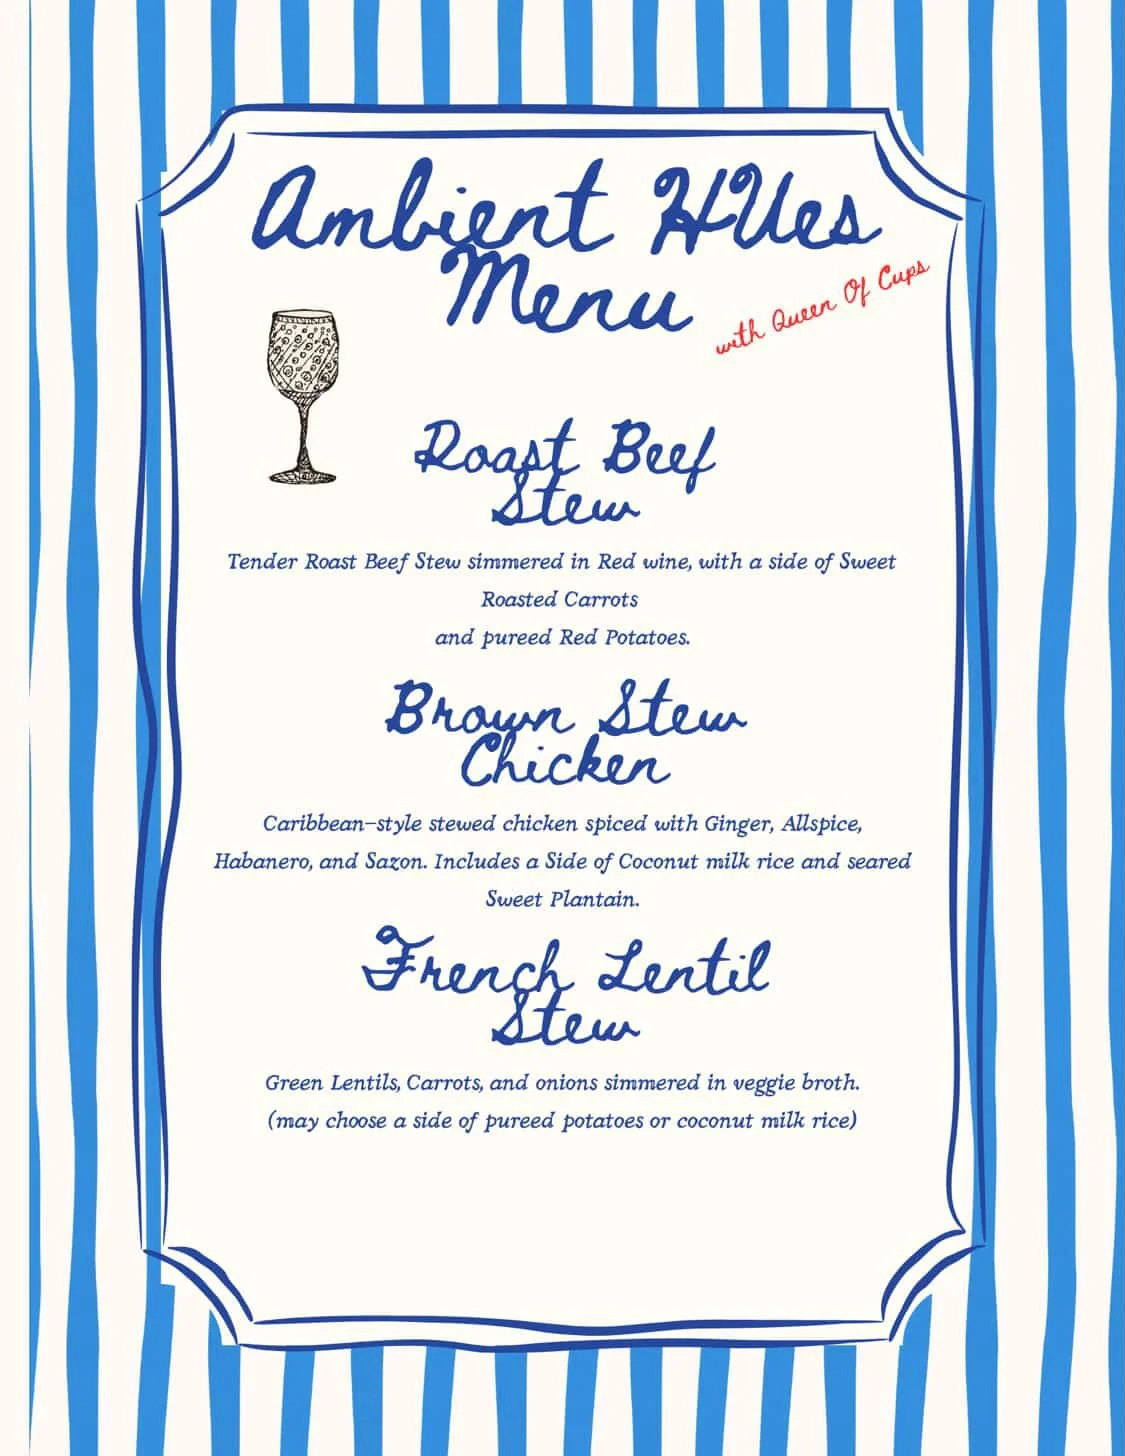 Ambient HUes
Menu
with Queen Of Cups
Roast Beef
Stew
Tender Roast Beef Stew simmered in Red wine, with a side of Sweet
Roasted Carrots
and pureed Red Potatoes.
Brown Stew
Chicken
Caribbean-style stewed chicken spiced with Ginger, Allspice,
Habanero, and Sazon. Includes a Side of Coconut milk rice and seared
Sweet Plantain.
French Lentil
Stew
Green Lentils, Carrots, and onions simmered in veggie broth.
(may choose a side of pureed potatoes or coconut milk rice)